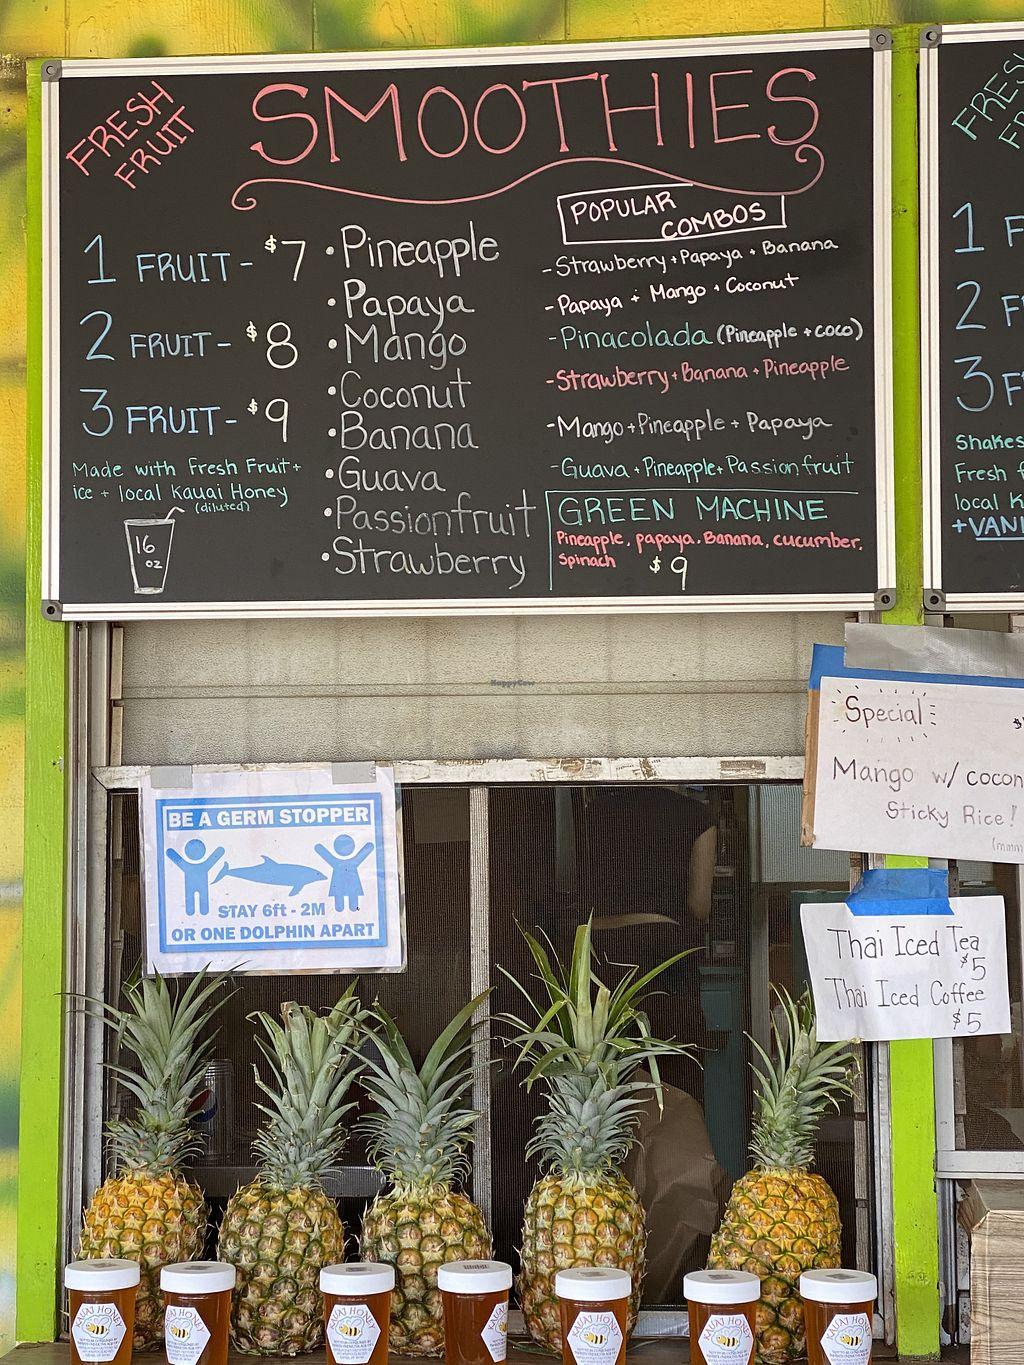 FRESH
FRUIT
SMOOTHIES
1 FRUIT - $7
2 FRUIT - $8
3 FRUIT - $9
Made with Fresh Fruit +
ice + local Kauai Honey
(diluted)
16
oz
• Pineapple
• Papaya
• Mango
• Coconut
• Banana
• Guava
• Passionfruit
• Strawberry
POPULAR
COMBOS
- Strawberry + Papaya + Banana
- Papaya + Mango + Coconut
- Pinacolada (Pineapple + coco)
- Strawberry + Banana + Pineapple
- Mango + Pineapple + Papaya
- Guava + Pineapple + Passionfruit
GREEN MACHINE
Pineapple, papaya, Banana, cucumber,
Spinach $9
1 F
2 F
3 F
Shakes
Fresh f
local K
HappyCow
Special
Mango w/ cocon
Sticky Rice!
(mmm
BE A GERM STOPPER
STAY 6ft - 2M
OR ONE DOLPHIN APART
Thai Iced Tea
$5
Thai Iced Coffee
$5
KAUAI HONEY
KAUAI HONEY
KAUAI HONEY
KAUAI HONEY
KAUAI HONEY
KAUAI HONEY